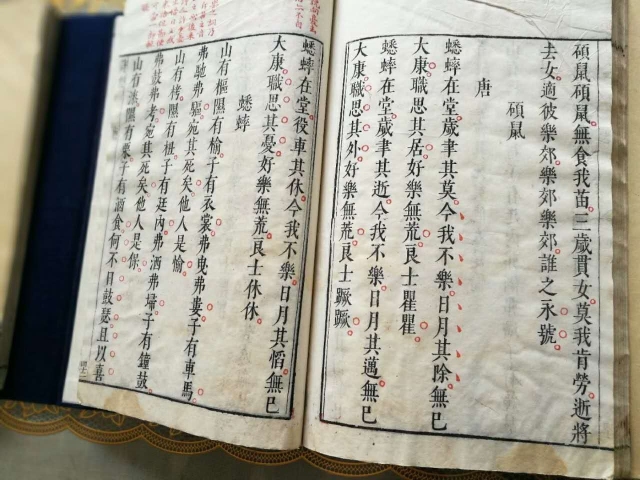 碩鼠碩鼠無食我苗三歲貫女莫我肯勞逝將
去女適彼樂郊樂郊樂郊誰之永號
碩鼠
唐
蟋蟀在堂歲聿其莫今我不樂日月其除無已
大康職思其居好樂無荒良士瞿瞿
蟋蟀在堂歲聿其逝今我不樂日月其邁無已
大康職思其外好樂無荒良士蹶蹶
蟋蟀在堂役車其休今我不樂日月其慆無已
大康職思其憂好樂無荒良士休休
蟋蟀
山有樞隰有榆子有衣裳弗曳弗婁子有車馬
弗馳弗驅宛其死矣他人是愉
山有栲隰有杻子有廷內弗洒弗埽子有鐘鼓
弗鼓弗考宛其死矣他人是保
山有漆隰有栗子有酒食何不日鼓瑟且以喜